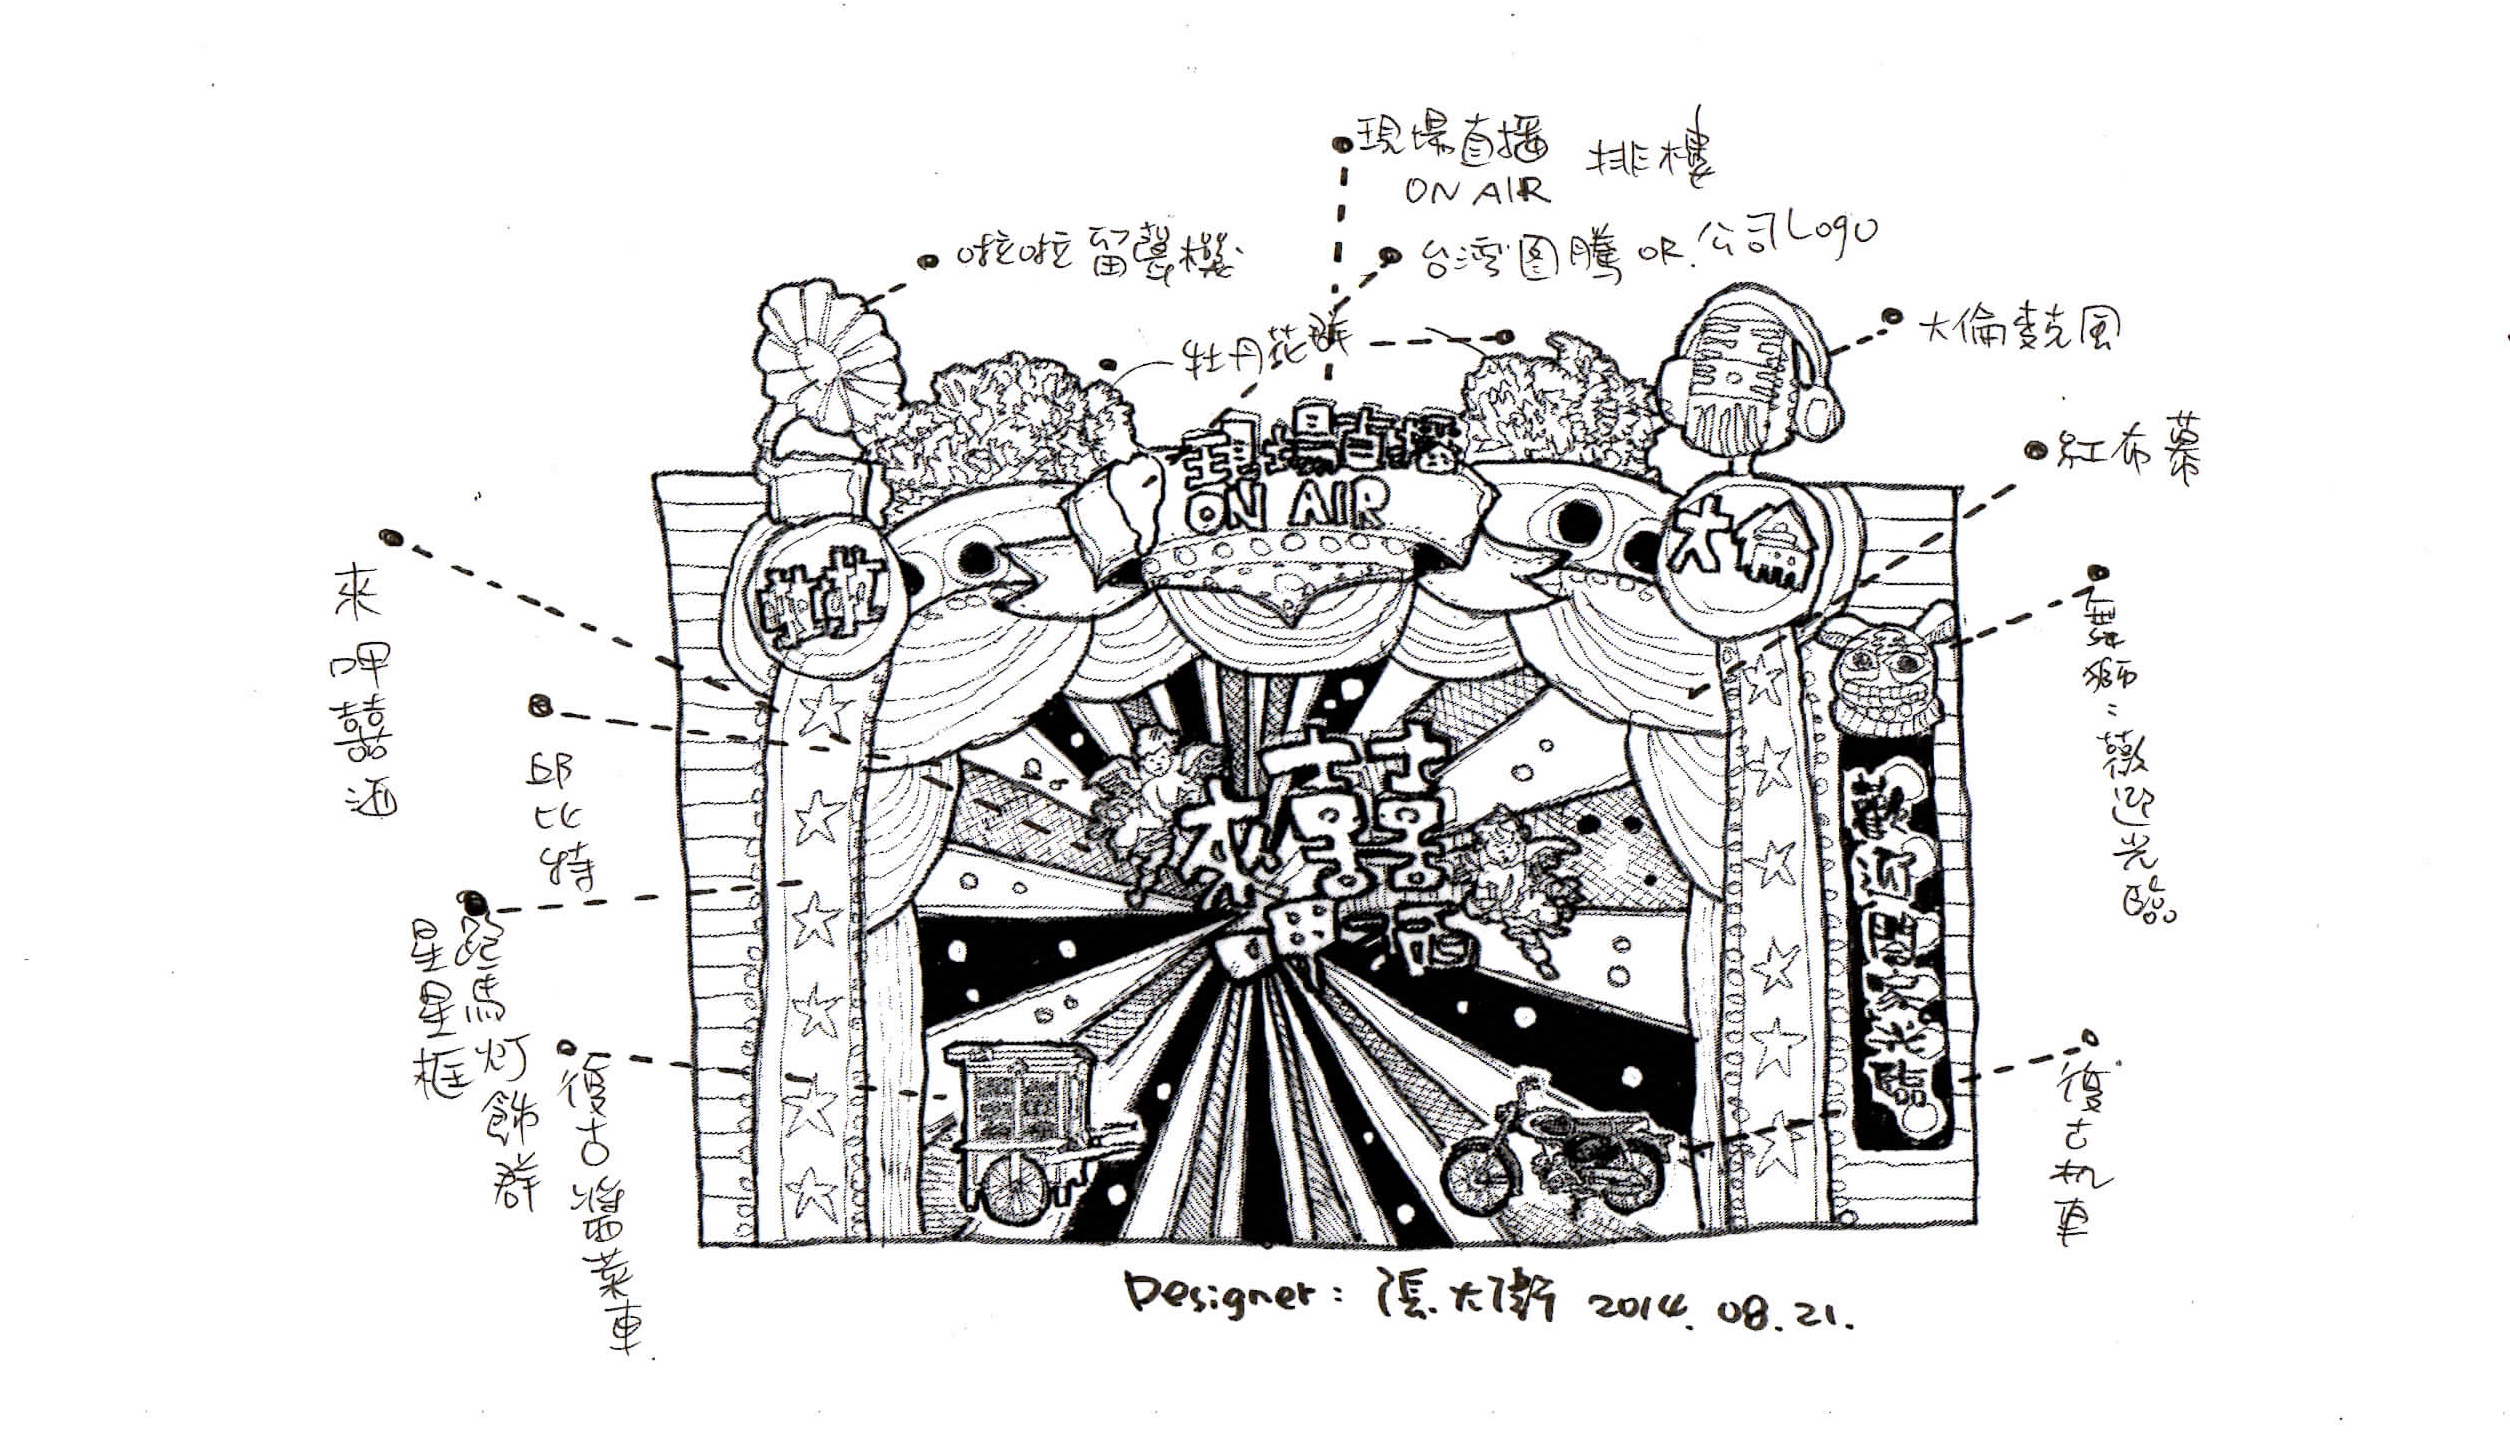 現場直播 排樓
ON AIR
台湾图騰 OR. 公司Logo
啦啦留聲機
牡丹花群
大倫麥克風
紅布幕
現場直播
ON AIR
啦啦
大倫
來呷囍酒
邱比特
跑馬灯飾群
星星框
復古醬菜車
舞獅:
歡迎光臨
復古机車
囍
酒
Designer: 張大衛 2014.08.21.